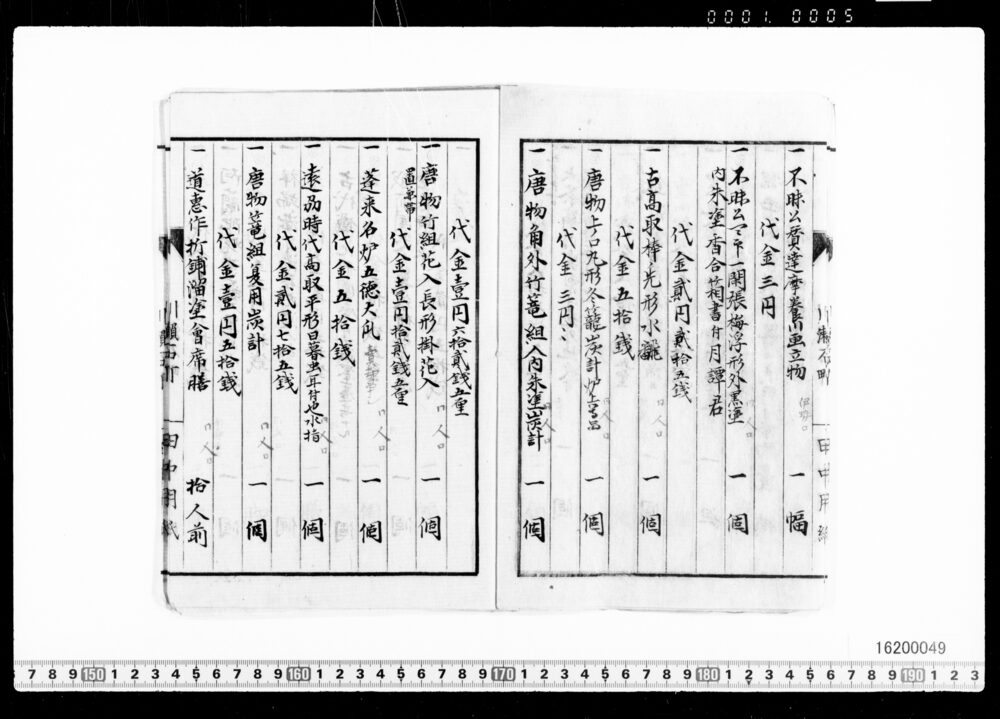 0001. 0005
一 不昧公賛達摩養川画立物 一 幅
代金三円
一 不昧公 一閑張梅浮形外黒塗 一 個
内朱塗香合箱書付月譚君
代金貳円貳拾五銭
一 古高取棒ノ先形水 一 個
代金五拾銭
一 唐物上口丸形冬籠炭計炉 一 個
代金三円
一 唐物角外竹篭組入内朱塗炭計 一 個
代金壹円六拾貳銭五厘
一 唐物竹組花入長形掛花入 一 個
置兼帯
代金壹円拾貳銭五厘
一 蓬来名炉五徳大瓦 一 個
代金五拾銭
一 遠州時代高取平形 耳付 水指 一 個
代金貳円七拾五銭
一 唐物篭組夏用炭計 一 個
代金壹円五拾銭
一 道恵作折鋪溜塗會席膳 拾人前
田中用紙
田中用紙
16200049
7 8 9 150 1 2 3 4 5 6 7 8 9 160 1 2 3 4 5 6 7 8 9 170 1 2 3 4 5 6 7 8 9 180 1 2 3 4 5 6 7 8 9 190 1 2 3